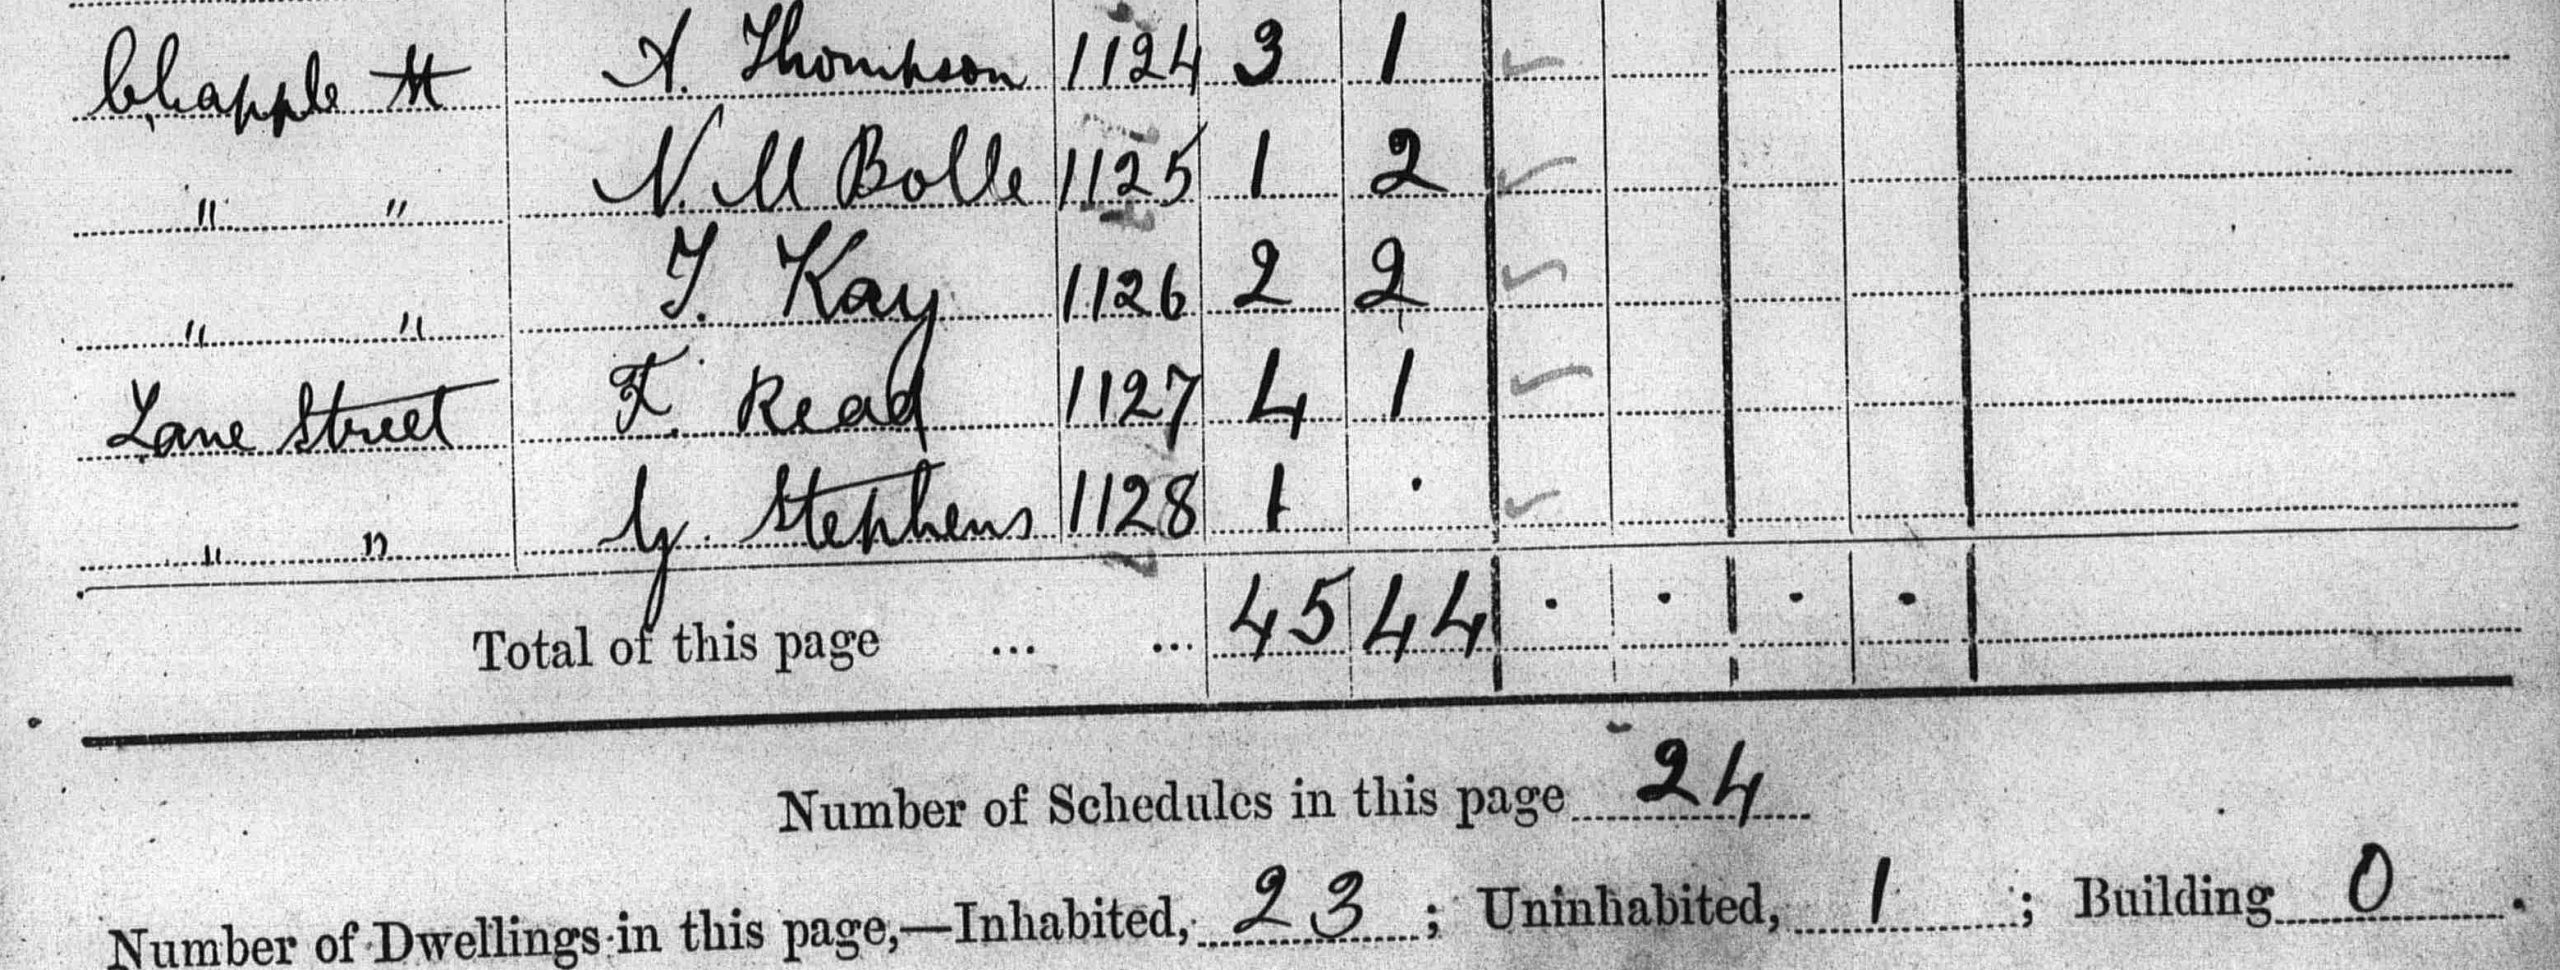 Chapple St A. Thompson 1124 3 1 ✓
" " N. M Bolle 1125 1 2 ✓
" " T. Kay 1126 2 2 ✓
Lane Street F. Read 1127 4 1 ✓
" " G. Stephens 1128 1 . ✓
Total of this page ... ... 45 44 . . . .
Number of Schedules in this page 24
Number of Dwellings in this page,—Inhabited, 23 ; Uninhabited, 1 ; Building 0 .